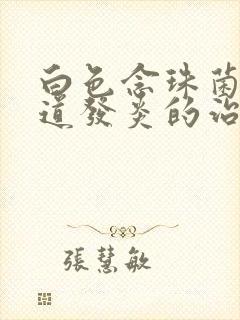 白色念珠菌
道發炎的治
張慧敏